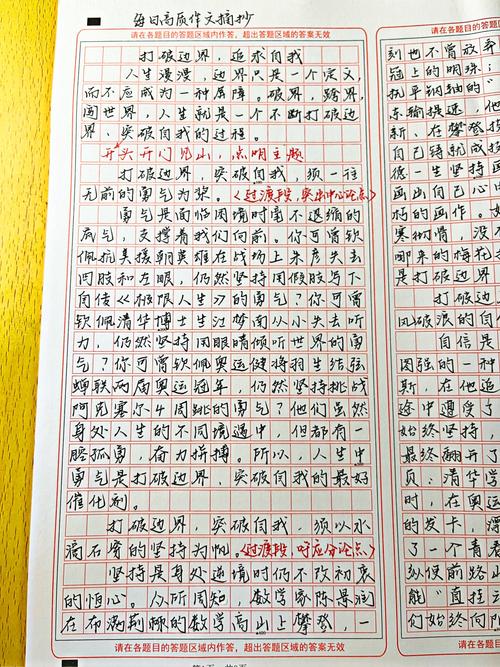 每日高质作文摘抄
请在各题目的答题区域内作答，超出答题区域的答案无效
打破边界，追求自我
人生漫漫，边界只是一个定义，
而不应成为一种屏障。破界，跨界，
闯世界，人生就是一个不断打破边
界、突破自我的过程。
开头开门见山，点明主题
打破边界，突破自我，须一往
无前的勇气为桨。<过渡段，突出中心论点>
勇气是面临困境时毫不退缩的
底气，支撑着我们向前。你可曾钦
佩抗美援朝英雄在战场上朱彦夫失去
四肢和左眼，仍然坚持用假肢写下
自传《极限人生》的勇气？你可曾
钦佩清华博士生江梦南从小失去听
力，仍然坚持用眼睛倾听世界的勇
气？你可曾钦佩奥运健将羽生结弦
蝉联两届奥运冠军，仍然坚持挑战
阿克塞尔4周跳的勇气？他们虽然
身处人生的不同境遇中，但都有一
腔孤勇，奋力拼搏。所以，人生之中
勇气是打破边界、突破自我的最好
催化剂。
打破边界，突破自我，须以水
滴石穿的坚持为帆。<过渡段，呼应分论点>
坚持是身处逆境时仍不改初衷
的恒心。众所周知，数学家陈景润
在布满荆棘的数学高山上攀登，一
请在各题目的答题区域内作答，超出答题区域的答案无效
请在各题目的答题区域
刻也不曾放弃
冠上的明珠；
新、在攀登
自己铸就成
德一生坚持画
画出自己心中
的画作。如
寒彻骨，没
哪来的梅花扑
是打破边界
打破边
风破浪的自信
自信是
图强的一种
斯，在他追
途中遭受了
始终坚持，
最终翻开了
页；清华学
时，在奥运
的发卡，
了一个青春
纵使前路山
能"直挂云
们始终向阳
请在各题目的答题区域